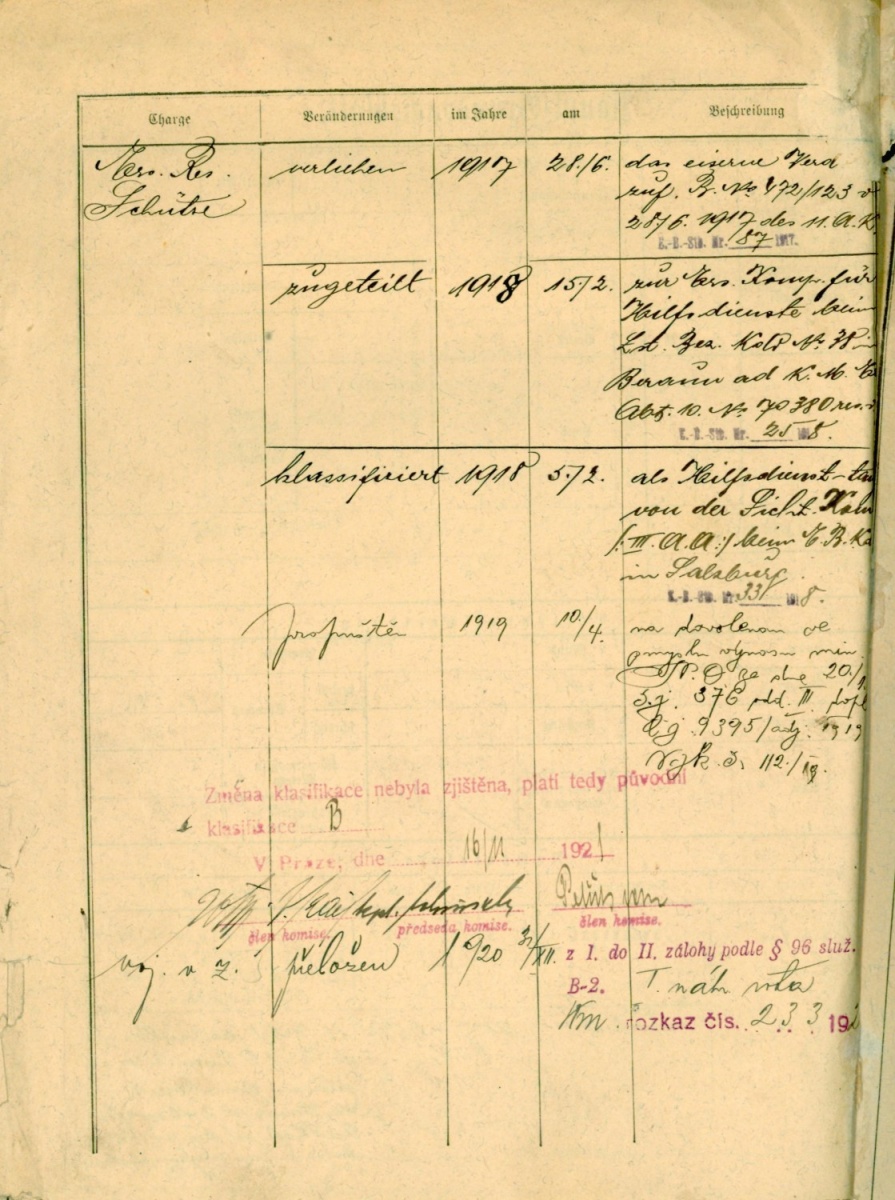 Charge Veränderungen im Jahre am Beschreibung
Ers. Res. verliehen 1917 28./6. das eiserne Verd
Schütze zuf. B. No 472/123 v
28/6. 1917 des 11. A. K.
K.-B.-Stb. Nr. 87 1917.
zugeteilt 1918 15./2. zur Ers. Komp. für
Hilfsdienste beim
Lst. Bez. Kdo No 38 in
Beraun ad K. M. E
Abt. 10. No 70380 res.
K.-B.-Stb. Nr. 25 1918.
klassifiziert 1918 5./2. als Hilfsdienst-ta
von der Sicht. Kom
/: III. A. A. :/ beim E. B. Ka
in Salzburg.
K.-B.-Stb. Nr. 33 1918.
propuštěn 1919 10./4. na dovolenou ve
smyslu výnosu min.
N. O ze dne 20./
č.j. 376 odd. III. dopl
č.j. 9395/adj. 1919
č. 112./19.
Změna klasifikace nebyla zjištěna, platí tedy původní
klasifikace B
V Praze, dne 16/11 1921
člen komise. předseda komise. člen komise.
voj. v z. přeložen 1920 31/XII. z I. do II. zálohy podle § 96 služ.
B-2. I. náh.
rozkaz čís. 233 192